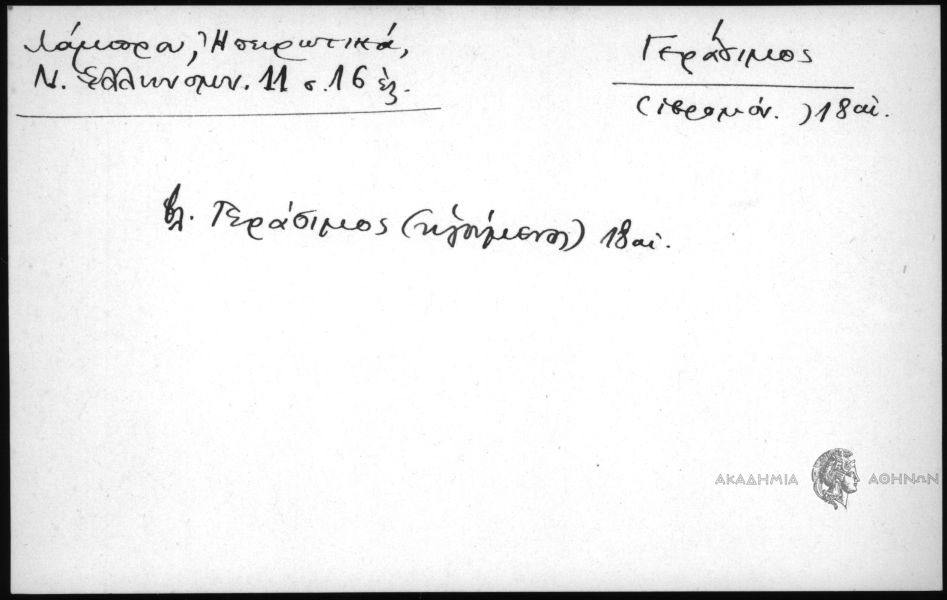 Λάμπρου, Ἠπειρωτικά,
Ν. Ἑλληνομν. 11 σ. 16 ἑξ.
Γεράσιμος
(ἱερομόν. ) 18 αἰ.
βλ. Γεράσιμος (ἡγούμενος) 18 αἰ.
ΑΚΑΔΗΜΙΑ ΑΘΗΝΩΝ